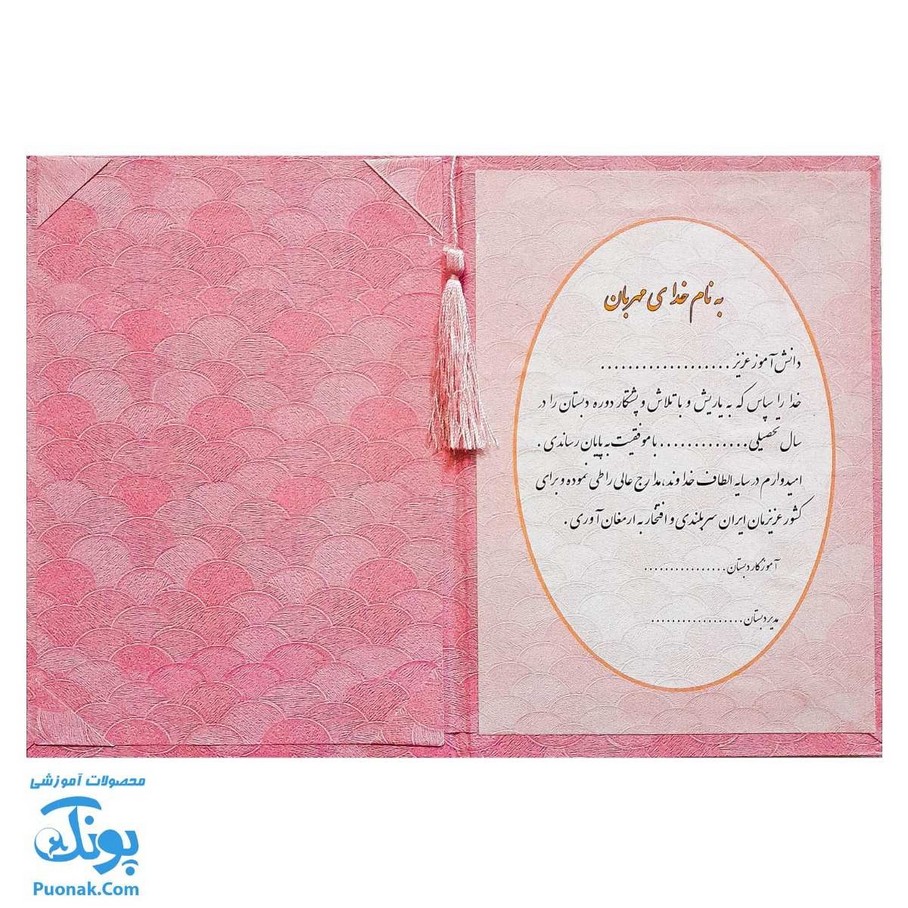 به نام خدای مهربان
دانش آموز عزیز....................
خدا را سپاس که به یاریش و با تلاش و پشتکار دوره دبستان را در
سال تحصیلی............. با موفقیت به پایان رساندی .
امیدوارم در سایه الطاف خداوند، مدارج عالی را طی نموده و برای
کشور عزیزمان ایران سربلندی و افتخار به ارمغان آوری .
آموزگار دبستان................
مدیر دبستان..................
محصولات آموزشی
پونک
Puonak.Com